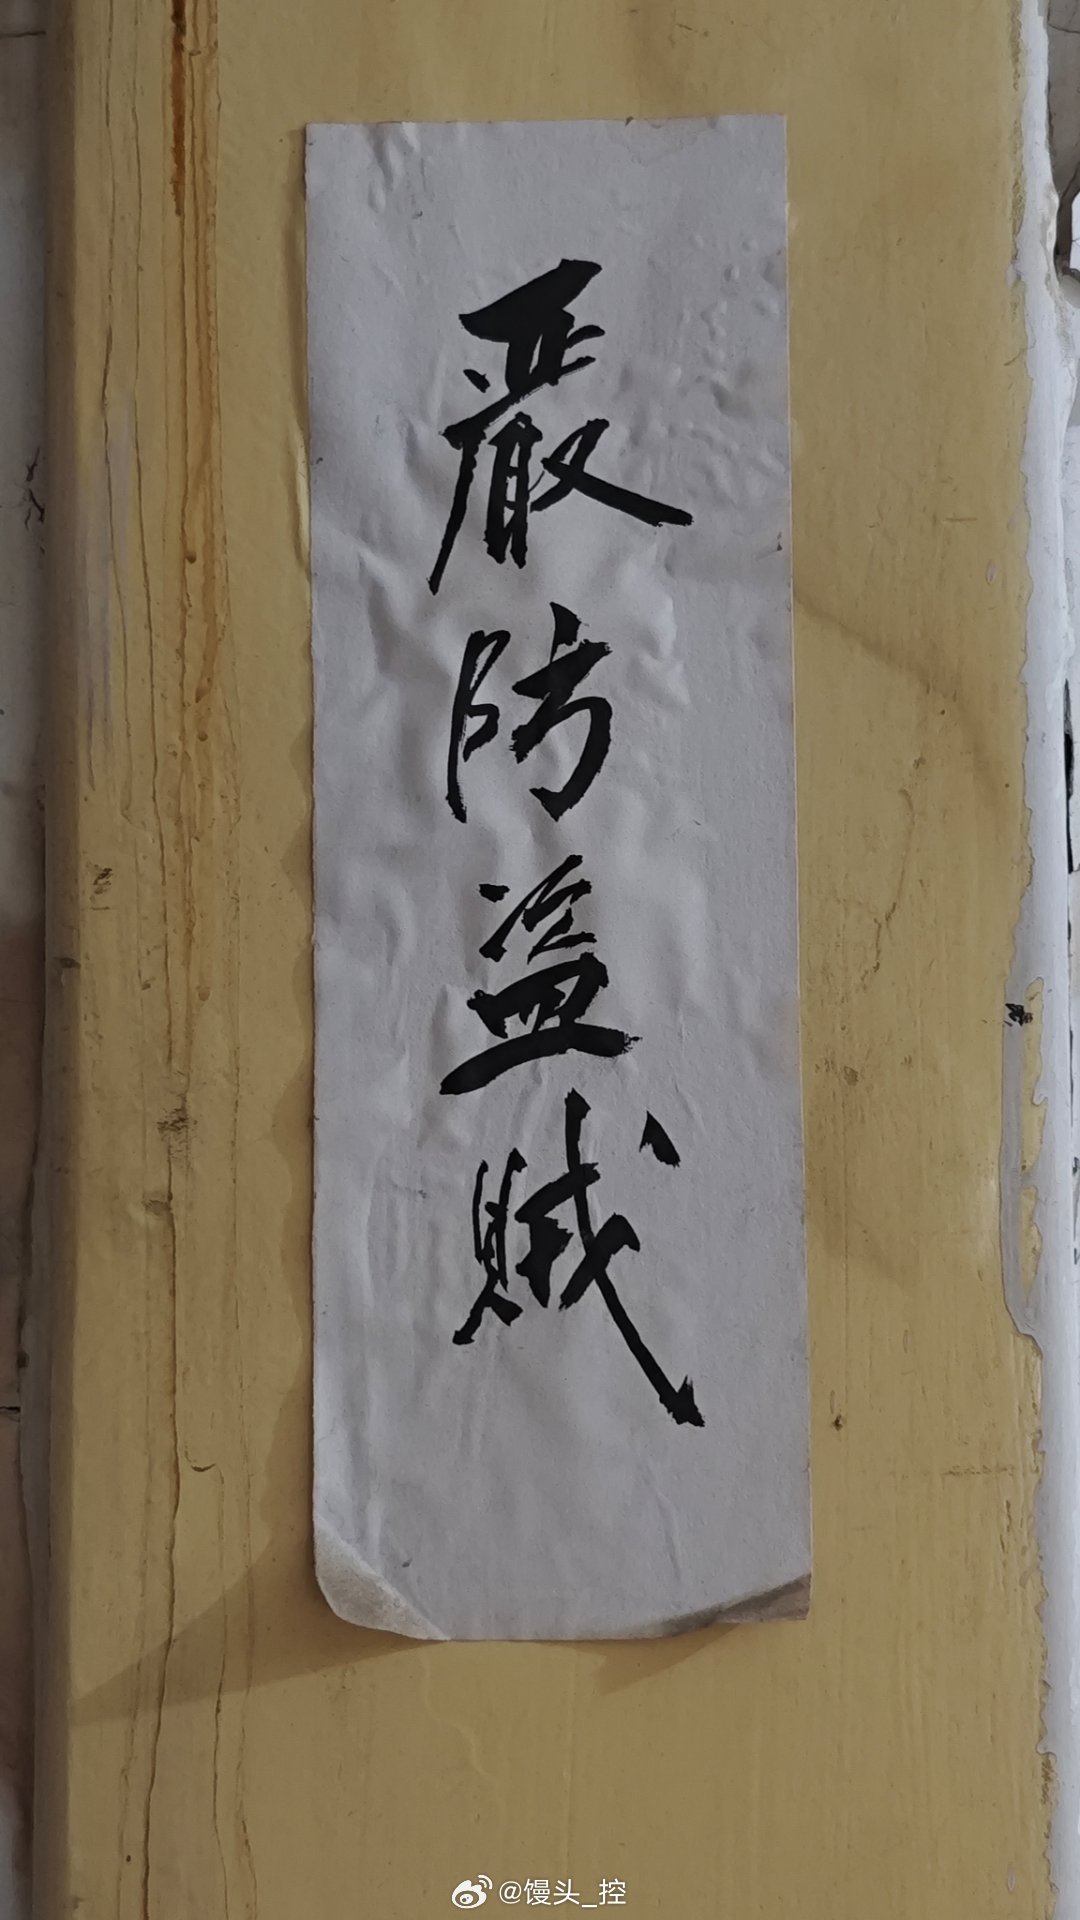 嚴防盗賊
@馒头_控